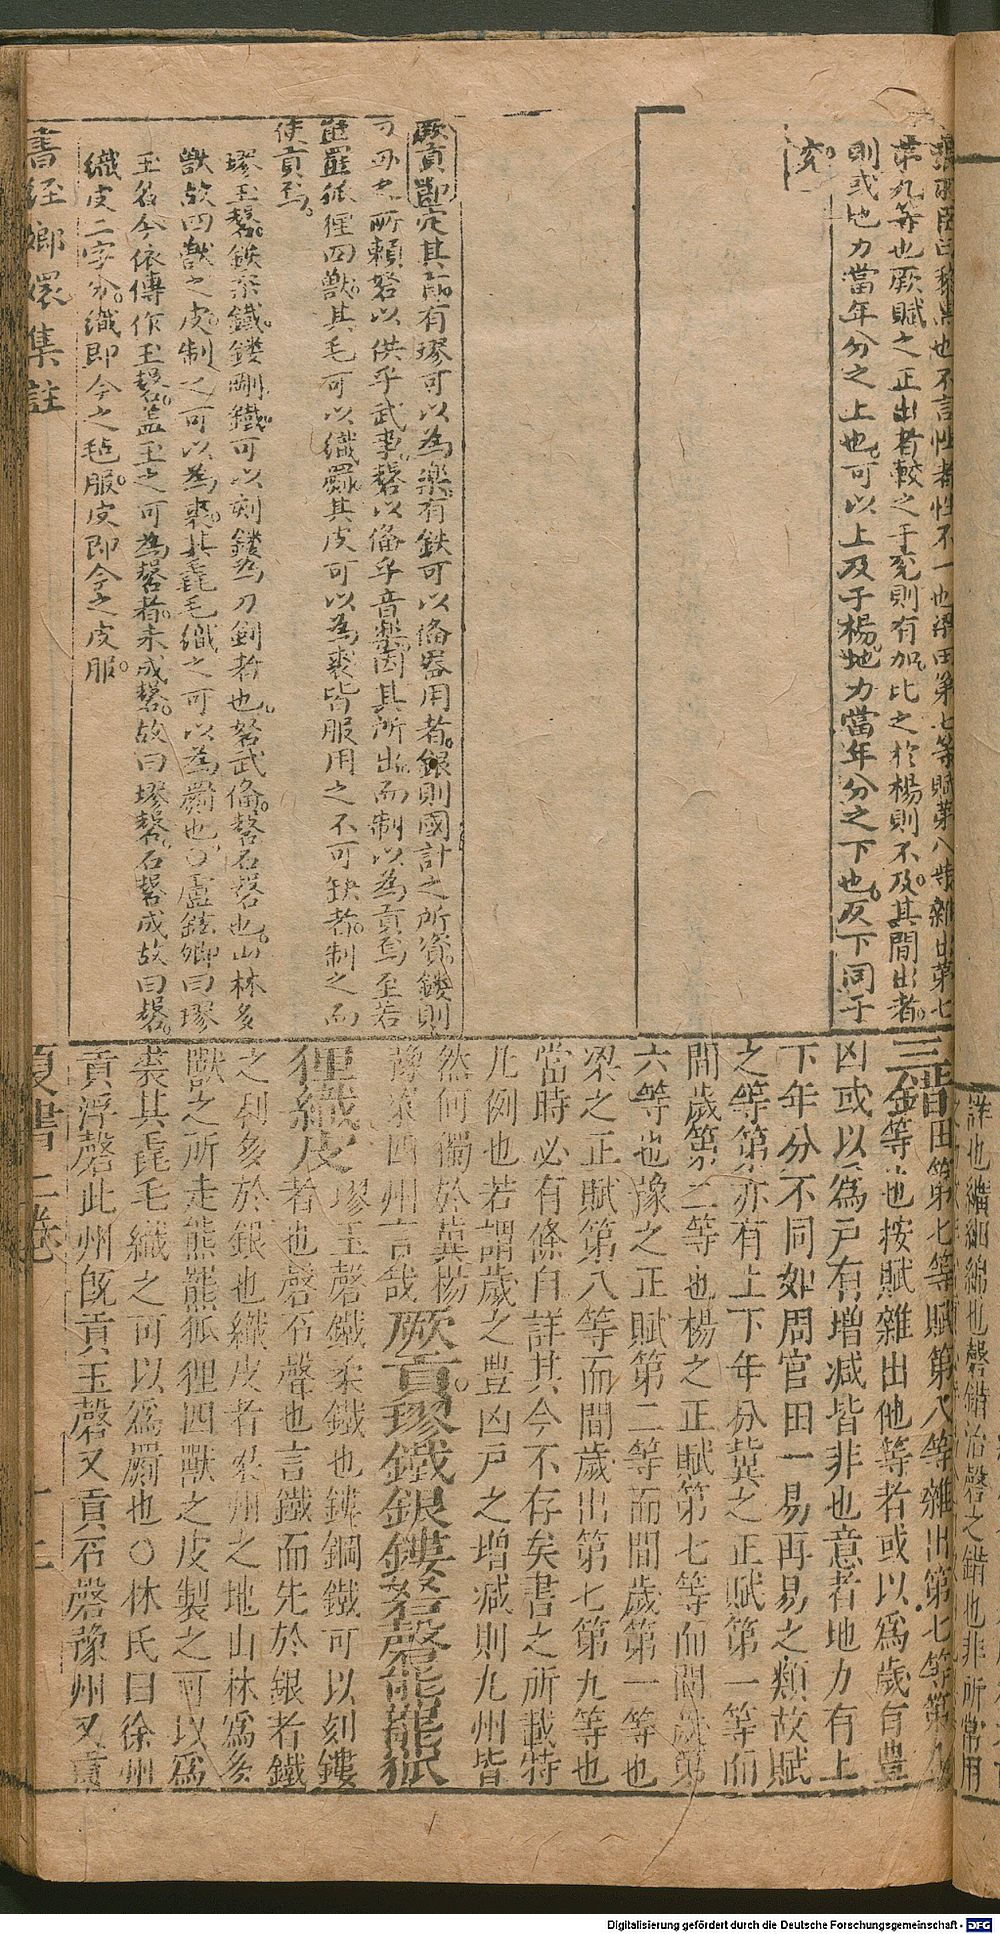 張聯臣曰黎黑也不言性者性不一也梁田第七等賦第八等雜出第七
第九等也厥賦之正出者較之于兗則有加比之於楊則不及其間出者
則或地力當年分之上也可以上及于楊地力當年分之下也反下同于
兗
厥貢節其所有璆可以為樂有鉄可以偹器用者銀則國計之所資鏤則
刀用之所賴砮以供乎武事磬以偹乎音樂因其所出而制以為貢焉至若
熊羆狐狸四獸其毛可以織罽其皮可以為裘皆服用之不可缺者制之而
使貢焉
璆玉磬鉄柔鐵鏤剛鐵可以刻鏤為刀劍者也砮武偹磬石磬也山林多
獸故四獸之皮制之可以為裘其毳毛織之可以為罽也○盧鉉卿曰璆
玉名今依傳作玉磬盖玉之可為磬者未成磬故曰璆磬石磬成故曰磬
織皮二字分織即今之毡服皮即今之皮服
書經嫏嬛集註
三錯田第七等賦第八等雜出第七等第九
等也按賦雜出他等者或以爲歲有豊
凶或以爲戸有增减皆非也意者地力有上
下年分不同如周官田一易再易之類故賦
之等第亦有上下年分冀之正賦第一等而
間歲第二等也楊之正賦第七等而間歲第
六等也豫之正賦第二等而間歲第一等也
梁之正賦第八等而間歲出第七第九等也
當時必有條目詳其今不存矣書之所載特
凡例也若謂歲之豊凶戸之增减則九州皆
然何獨於冀楊
豫梁四州言哉厥貢璆鐵銀鏤砮磬熊羆狐
狸織皮璆玉磬鐵柔鐵也鏤鋼鐵可以刻鏤
者也磬石磬也言鐵而先於銀者鐵
之利多於銀也織皮者梁州之地山林爲多
獸之所走熊羆狐狸四獸之皮製之可以爲
裘其毳毛織之可以爲罽也○林氏曰徐州
貢浮磬此州旣貢玉磬又貢石磬豫州又貢
夏書二卷
詳也纊細綿也磬錯治磬之錯也非所常用
Digitalisierung gefördert durch die Deutsche Forschungsgemeinschaft - DFG